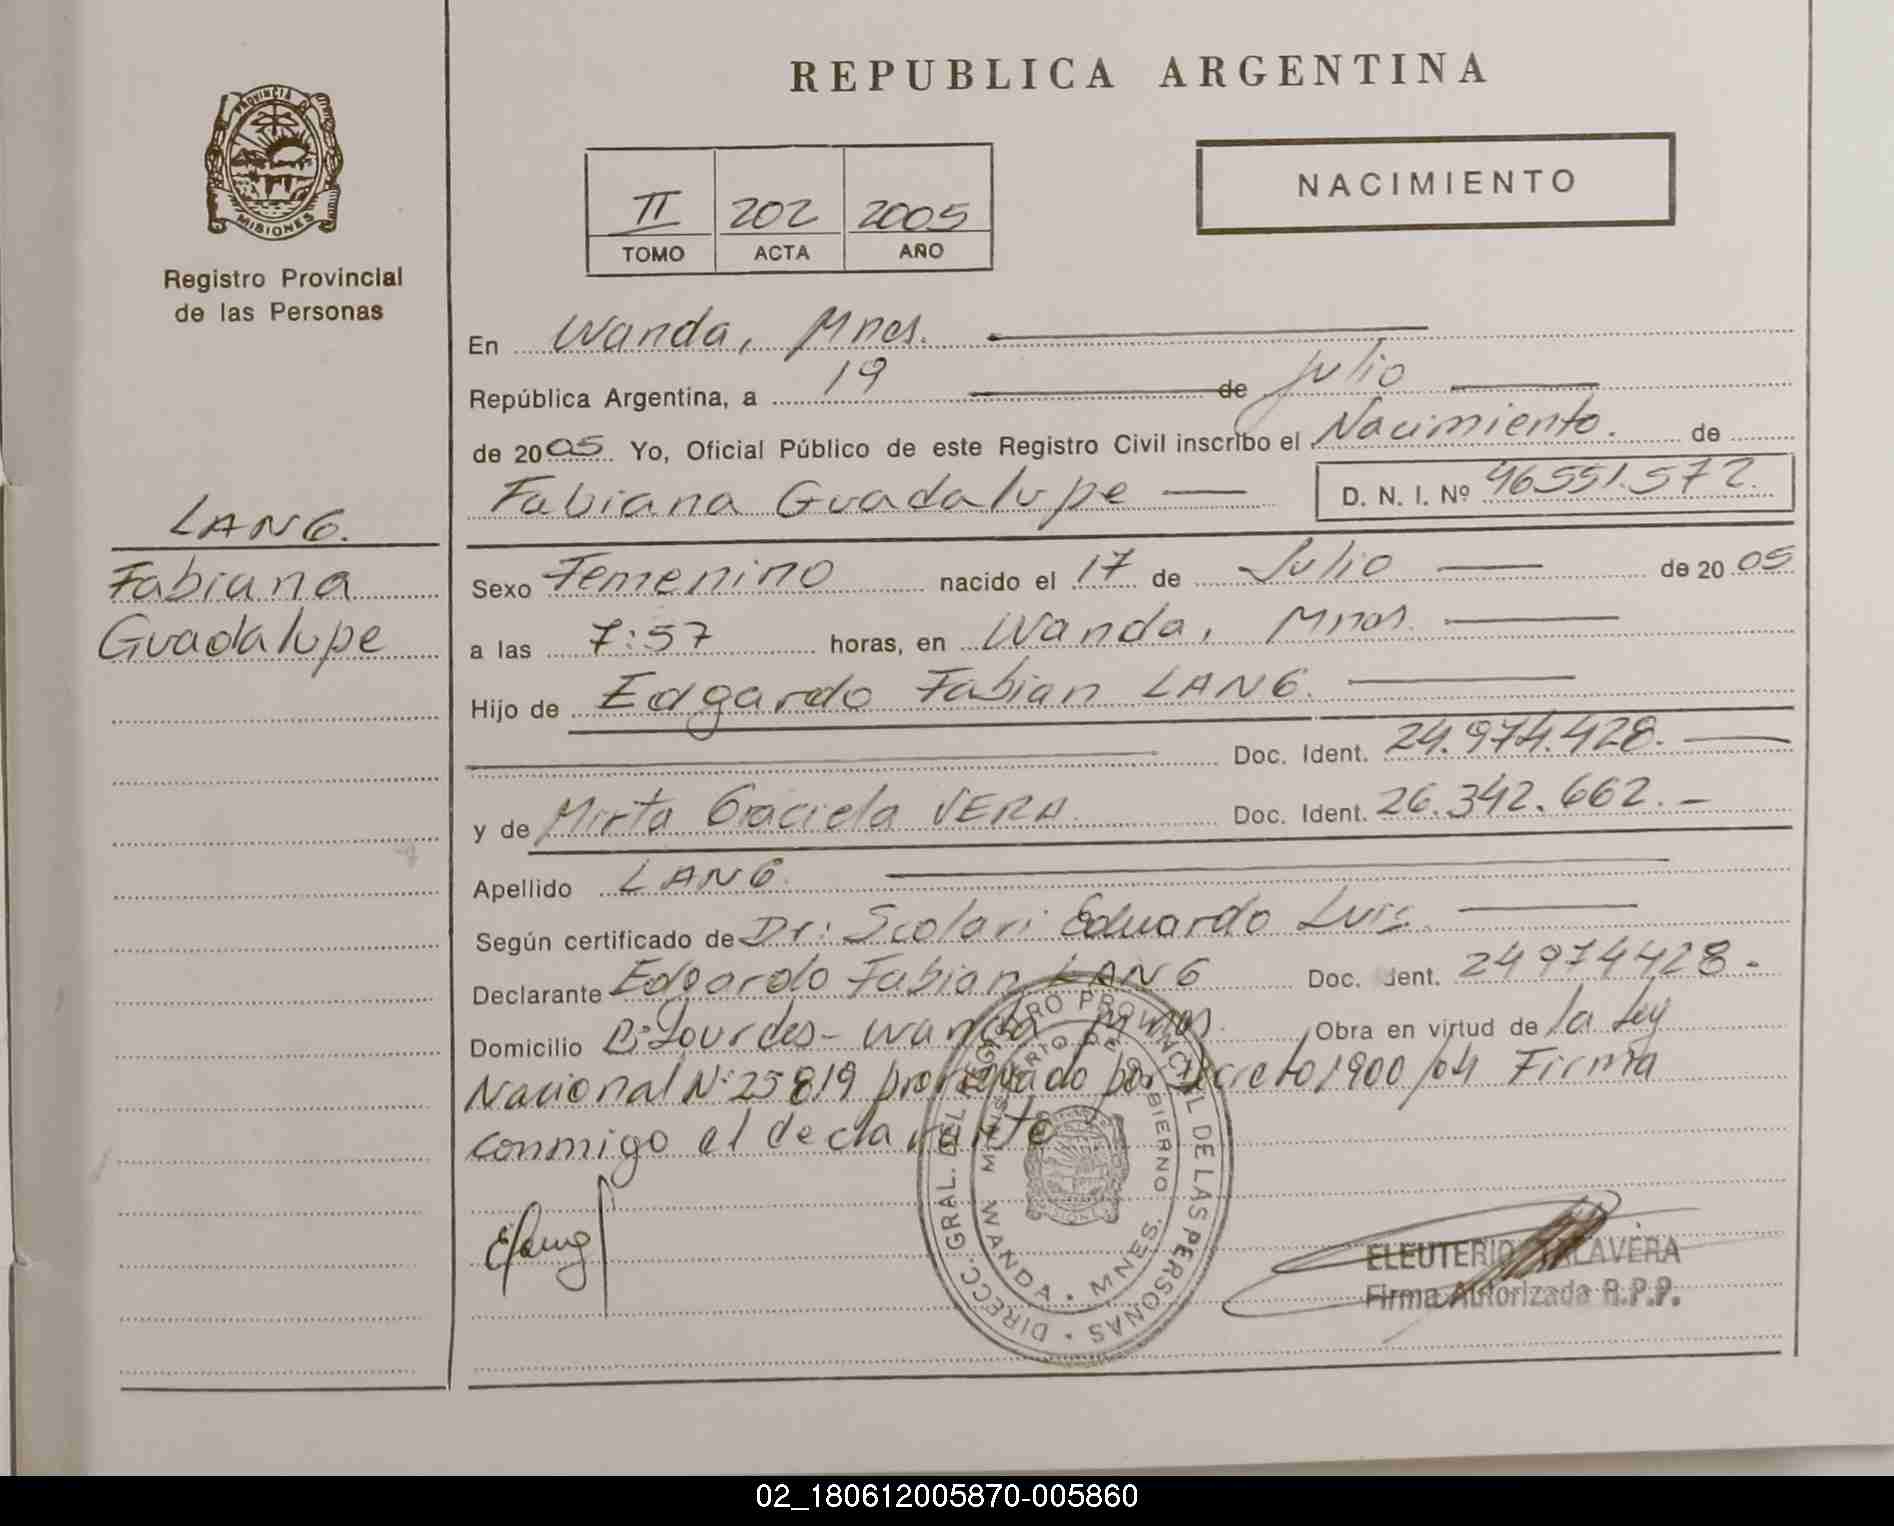 REPUBLICA ARGENTINA
PROVINCIA D
MISIONES
Registro Provincial
de las Personas
II 202 2005
TOMO ACTA AÑO
NACIMIENTO
En Wanda, Mnes.
República Argentina, a 19 de julio
de 2005 Yo, Oficial Público de este Registro Civil inscribo el Nacimiento. de
Fabiana Guadalupe D. N. I. Nº 46551.572.
LANG.
Fabiana
Guadalupe
Sexo Femenino nacido el 17 de Julio de 2005
a las 7:57 horas, en Wanda, Mnes.
Hijo de Edgardo Fabian LANG.
Doc. Ident. 24.974.428.
y de Mirta Graciela VERA Doc. Ident. 26.342.662.-
Apellido LANG.
Según certificado de Dr: Scolari Eduardo Luis.
Declarante Edgardo Fabian LANG Doc. Ident. 24974428.
Domicilio B: Lourdes- Wanda Mnes. Obra en virtud de la ley
Nacional Nº 25819 prorrogado por Decreto 1900/04 Firma
conmigo el declarante
DIRECC. GRAL. DEL REGISTRO PROVINCIAL DE LAS PERSONAS
MINISTERIO DE GOBIERNO
WANDA · MNES.
MISIONES
ELang
ELEUTERIO TALAVERA
Firma Autorizada R.P.P.
02_180612005870-005860